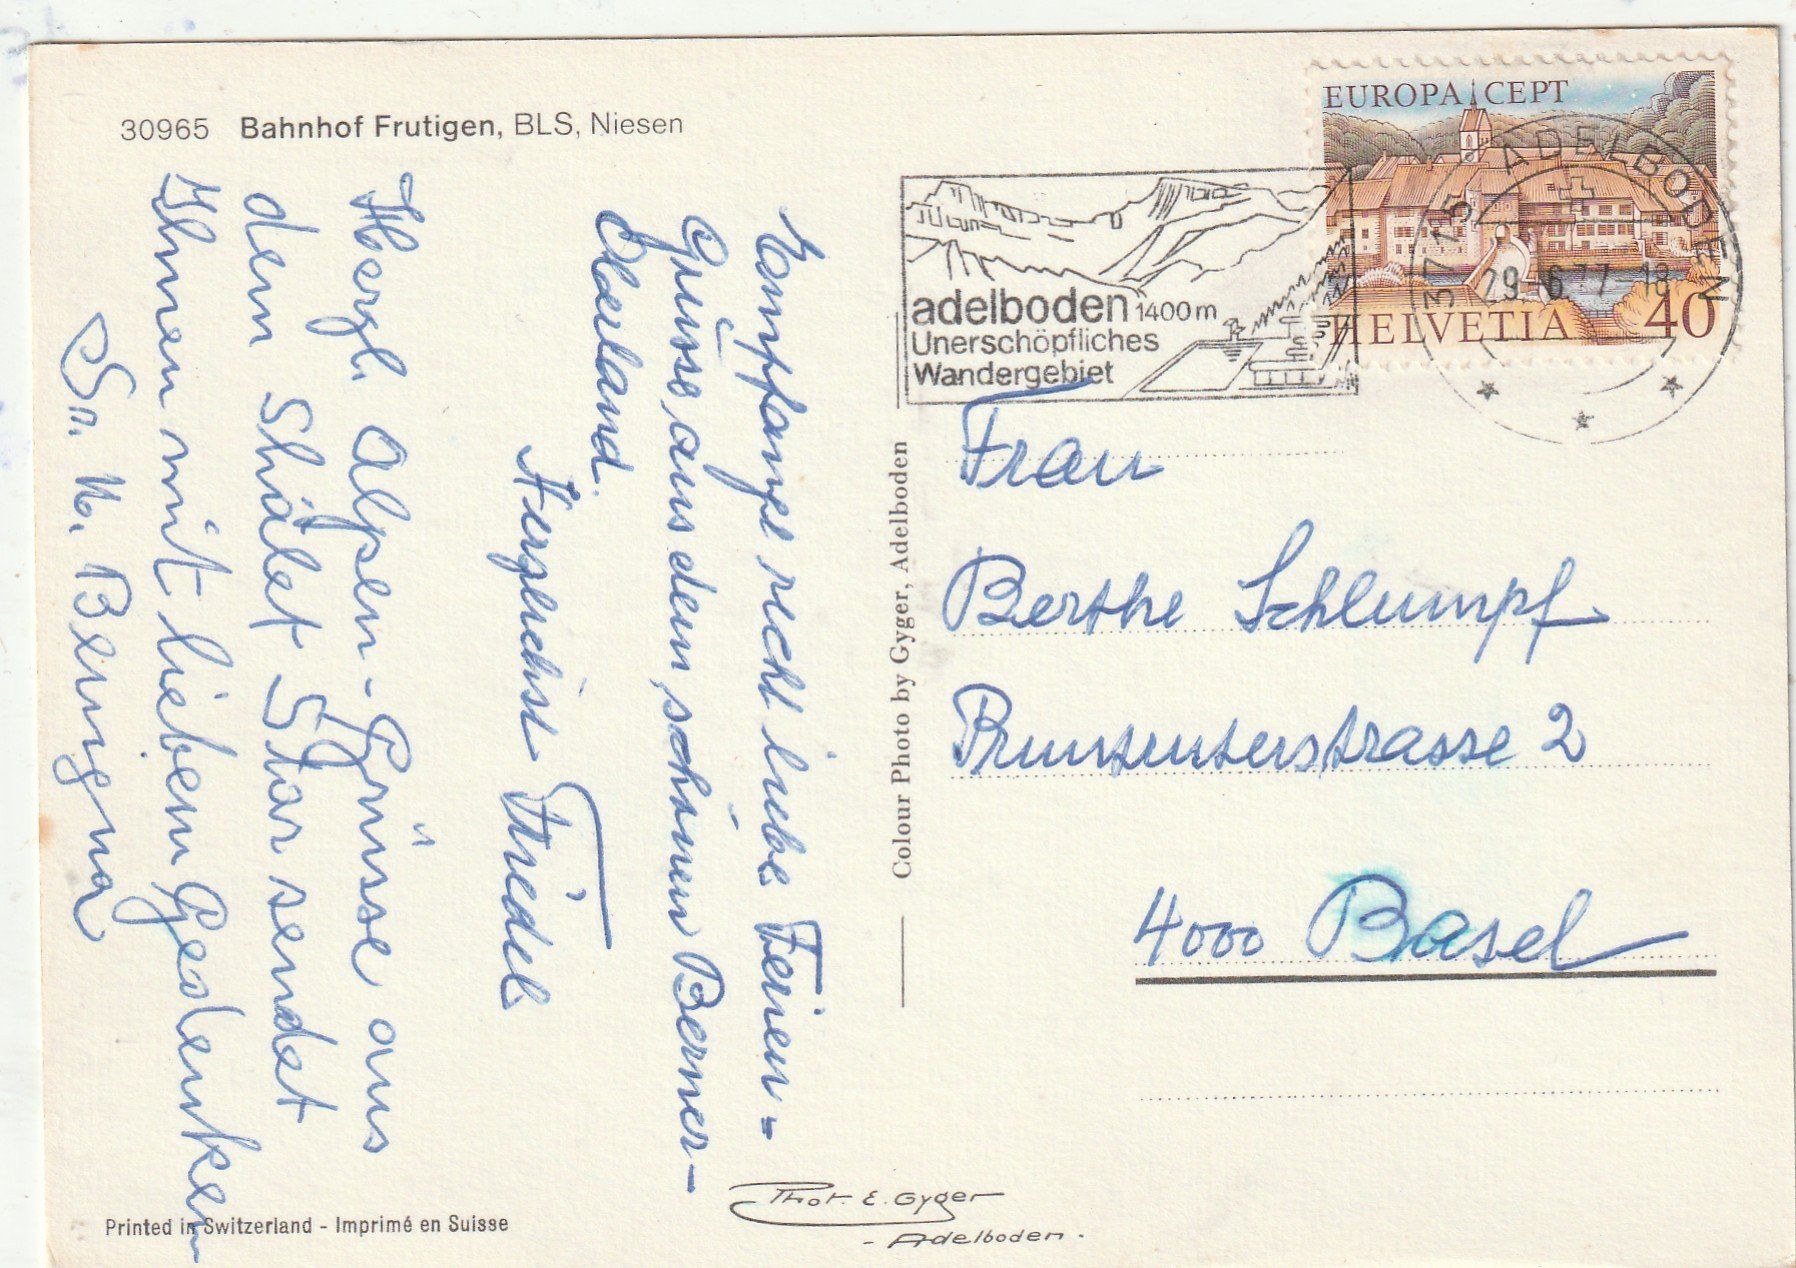 30965 Bahnhof Frutigen, BLS, Niesen
EUROPA CEPT
HELVETIA 40
3715 ADELBODEN
29-6 77-18
adelboden 1400m
Unerschöpfliches
Wandergebiet
Empfange recht liebe Ferien-
Grüsse aus dem schönen Berner-
Oberland.
Herzlichst Friedel
Herzl. Alpen-Grüsse aus
dem Shâlet Shar sendet
Ihnen mit liebem Gedenken
Sr. M. Benigna
Colour Photo by Gyger, Adelboden
Frau
Berthe Schlumpf
strasse 2
4000 Basel
Phot. E. Gyger
- Adelboden.
Printed in Switzerland - Imprimé en Suisse